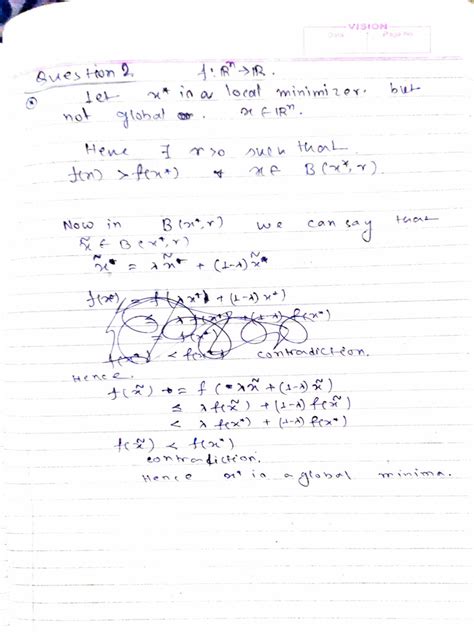 VISION
Question 2. f: ℝⁿ → ℝ.
Let x* is a local minimizer. but
not global . x ∈ ℝⁿ.
Hence ∃ r>0 such that
f(x) > f(x*) ∀ x ∈ B(x*, r).
Now in B(x*, r) we can say that
x̃ ∈ B(x*, r)
x̃* = λx̃* + (1-λ)x̃*
f(x*) = f(λx*) + (1-λ) x*)
≤ λf(x*) + (1-λ) f(x*)
= f(x*)
f(x*) < f(x*) contradiction.
Hence.
f(x̃) = f(λx̃ + (1-λ)x̃)
≤ λf(x̃) + (1-λ) f(x̃)
< λf(x*) + (1-λ) f(x*)
f(x̃) < f(x*)
contradiction.
Hence x* is a global minima.